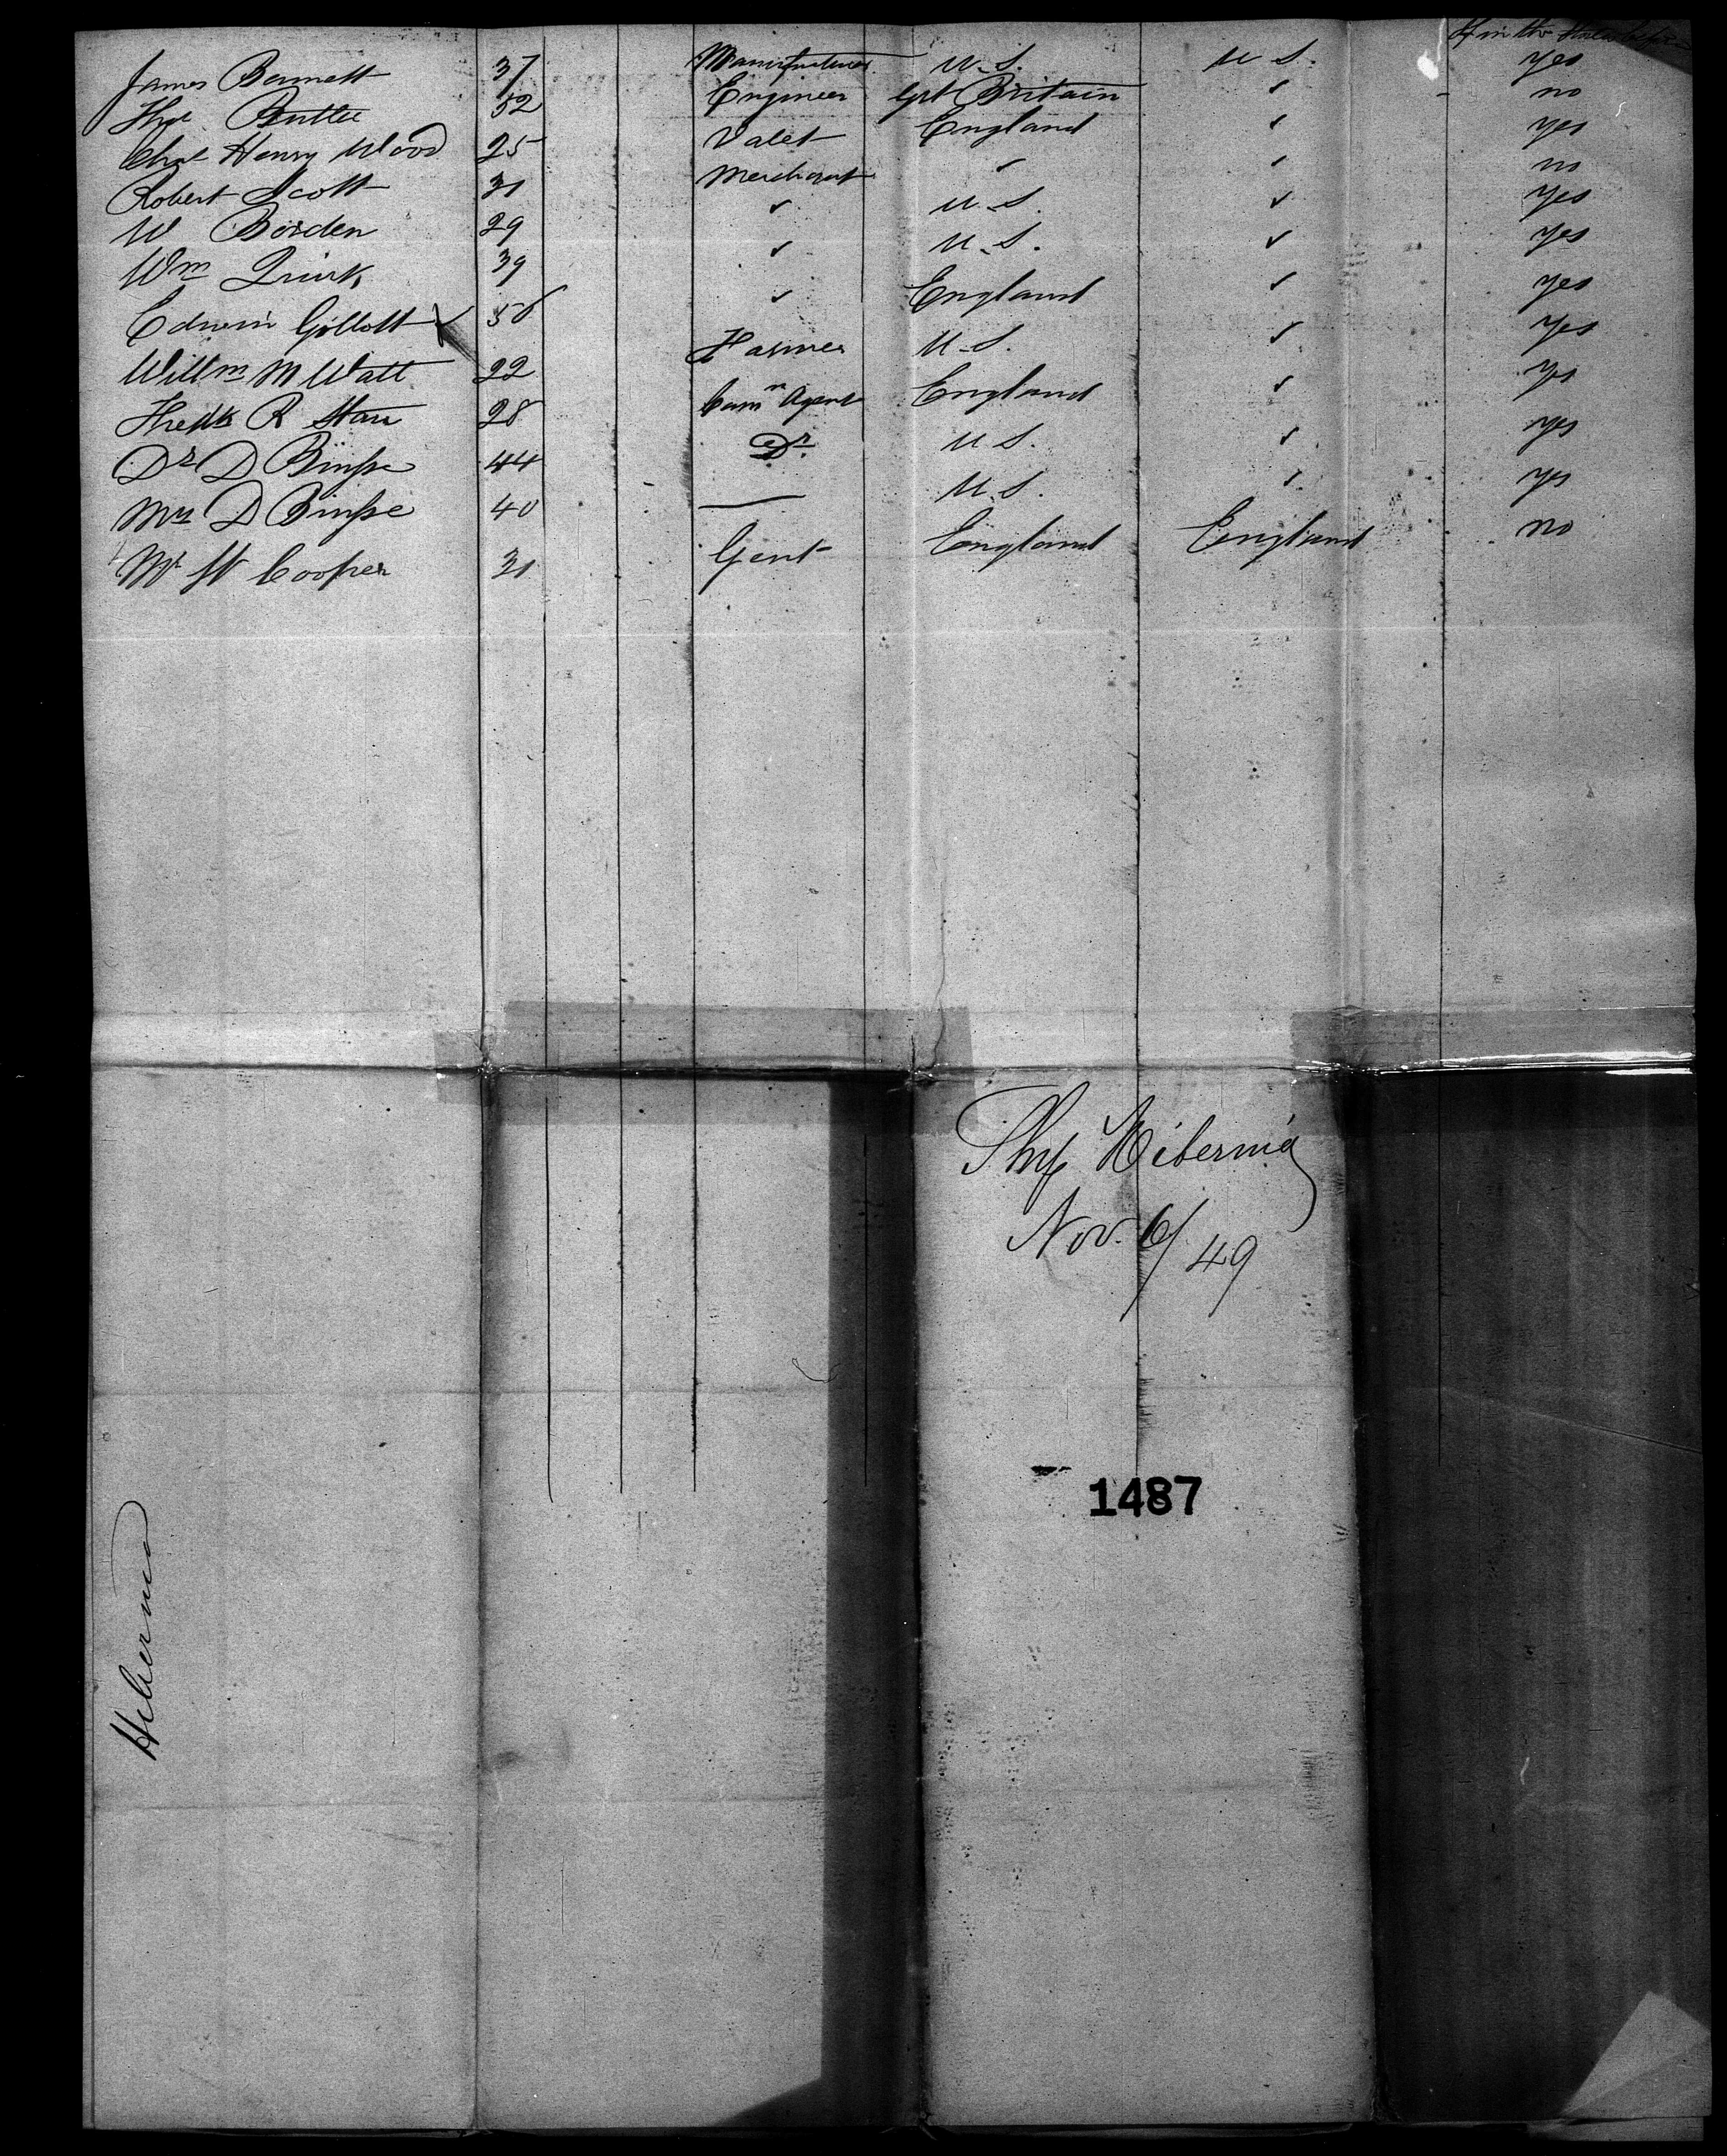 If in the States before
James Bennett 37 Manufacturer U.S. U S. yes
Thos Butler 52 Engineer Grt Britain ✓ no
Chas Henry Wood 25 Valet England ✓ yes
Robert Scott 31 Merchant ✓ ✓ no
W Borden 29 ✓ U.S. ✓ yes
Wm Quirk 39 ✓ U.S. ✓ yes
Edwin Gillott 50 ✓ England ✓ yes
Willm M Watt 22 Farmer U.S. ✓ yes
Fredk R Starr 28 Comn Agent England ✓ yes
Dr D Binsse 44 Dr U S. ✓ yes
Mrs D Binsse 40 — U.S. ✓ yes
Mr W Cooper 31 Gent England England no
Shp Hibernia
Nov. 6/49
1487
Hibernia